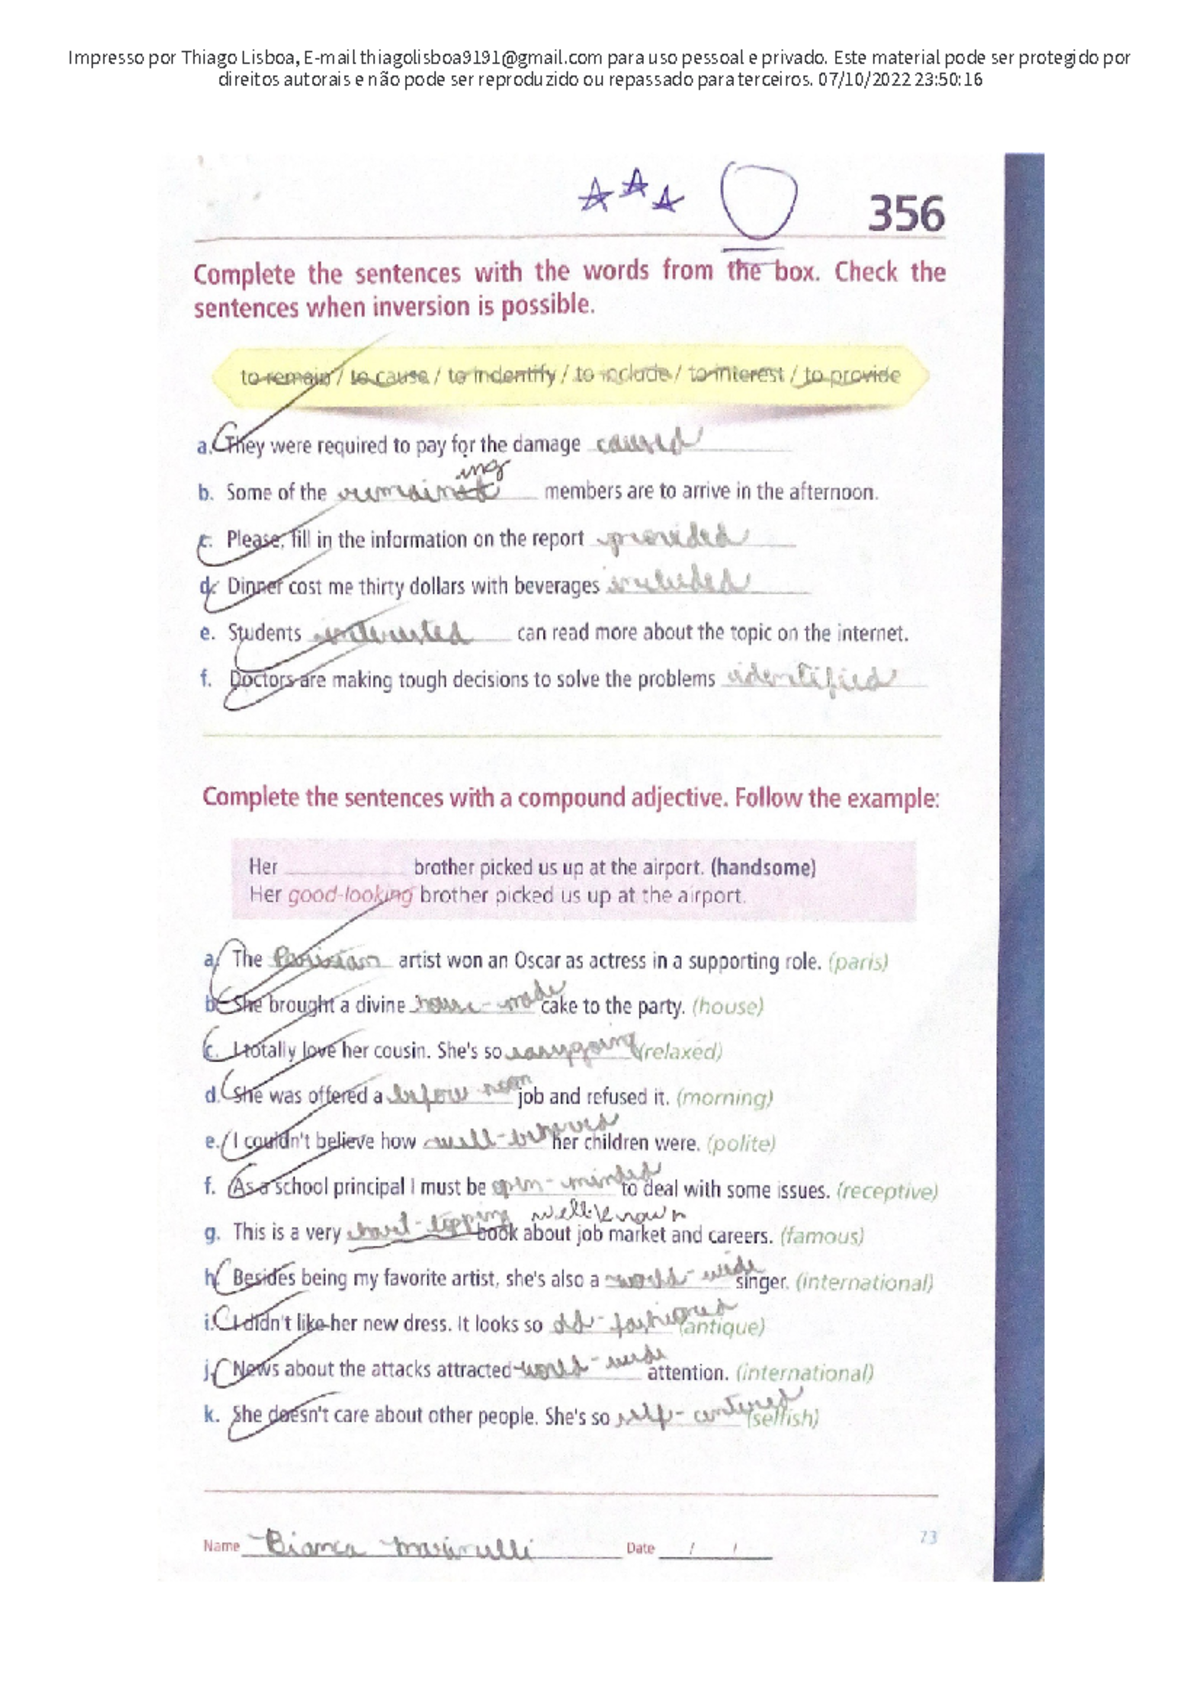 Impresso por Thiago Lisboa, E-mail thiagolisboa9191@gmail.com para uso pessoal e privado. Este material pode ser protegido por
direitos autorais e não pode ser reproduzido ou repassado para terceiros. 07/10/2022 23:50:16
356
Complete the sentences with the words from the box. Check the
sentences when inversion is possible.
to remain / to cause / to indentify / to include / to interest / to provide
a. They were required to pay for the damage caused
ing
b. Some of the remain members are to arrive in the afternoon.
c. Please, fill in the information on the report provided
d. Dinner cost me thirty dollars with beverages included
e. Students interested can read more about the topic on the internet.
f. Doctors are making tough decisions to solve the problems identified
Complete the sentences with a compound adjective. Follow the example:
Her brother picked us up at the airport. (handsome)
Her good-looking brother picked us up at the airport.
a. The Parisian artist won an Oscar as actress in a supporting role. (paris)
b. She brought a divine house-made cake to the party. (house)
c. I totally love her cousin. She's so easygoing (relaxed)
d. She was offered a before noon job and refused it. (morning)
e. I couldn't believe how well-behaved her children were. (polite)
f. As a school principal I must be open-minded to deal with some issues. (receptive)
well-known
g. This is a very book about job market and careers. (famous)
h. Besides being my favorite artist, she's also a world-wide singer. (international)
i. I didn't like her new dress. It looks so old-fashioned (antique)
j. News about the attacks attracted world-wide attention. (international)
k. She doesn't care about other people. She's so self-centered (selfish)
73
Name Bianca Date / /